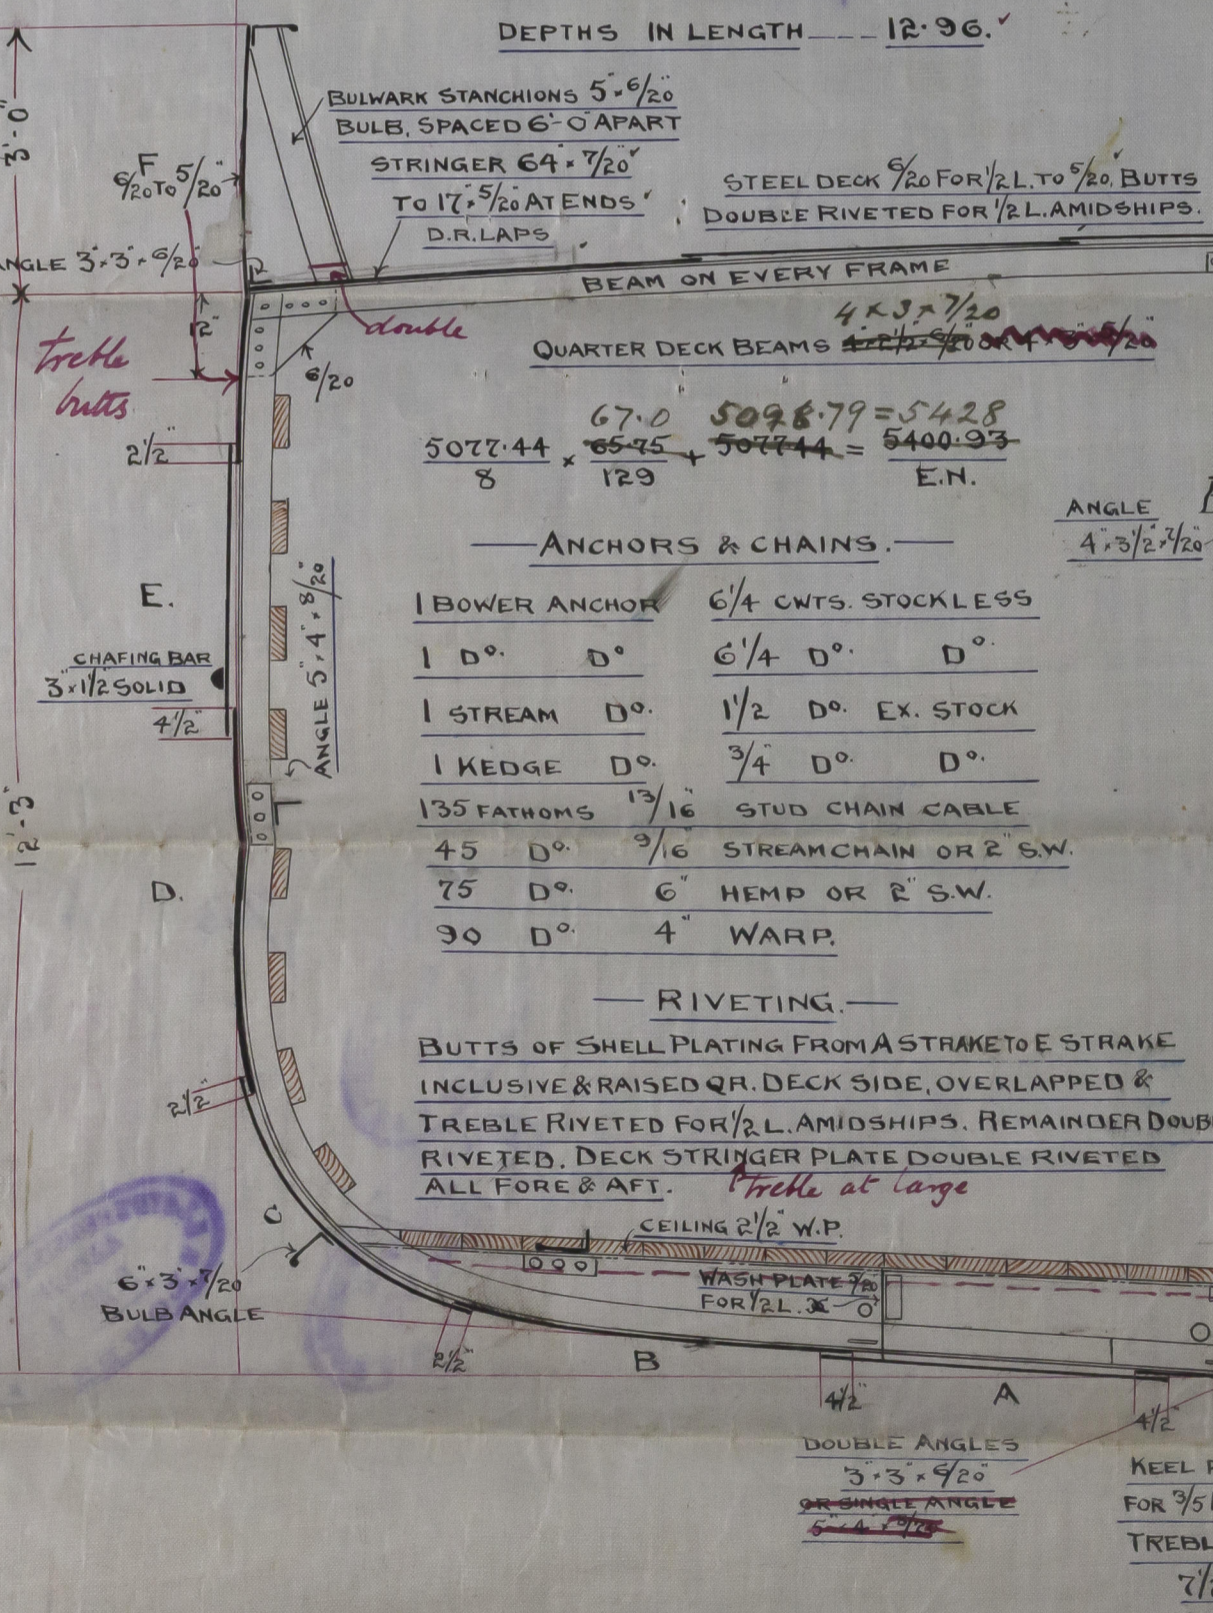 DEPTHS IN LENGTH ___ 12·96. ✓
3'-0"
BULWARK STANCHIONS 5" × 6/20"
BULB, SPACED 6'-0" APART
STRINGER 64" × 7/20" ✓
TO 17" × 5/20" AT ENDS ✓
D.R. LAPS
F
6/20 TO 5/20"
STEEL DECK 6/20 FOR 1/2 L. TO 5/20", BUTTS
DOUBLE RIVETED FOR 1/2 L. AMIDSHIPS.
ANGLE 3" × 3" × 6/20"
BEAM ON EVERY FRAME
12"
double
treble
butts
6/20
4 × 3 × 7/20
QUARTER DECK BEAMS 4" × 2 1/2" × 6/20" OR 4" × 3" × 5/20"
67·0 5098·79 = 5428
5077·44 × 65·75 + 5077·44 = 5400·93
8 129 E.N.
2 1/2"
ANGLE
4" × 3 1/2" × 7/20"
ANCHORS & CHAINS.
1 BOWER ANCHOR 6 1/4 CWTS. STOCKLESS
1 Do. Do 6 1/4 Do. Do.
1 STREAM Do. 1 1/2 Do. EX. STOCK
1 KEDGE Do. 3/4 Do. Do.
135 FATHOMS 13/16" STUD CHAIN CABLE
45 Do. 9/16" STREAM CHAIN OR 2" S.W.
75 Do. 6" HEMP OR 2" S.W.
90 Do. 4" WARP.
E.
CHAFING BAR
3" × 1 1/2" SOLID
4 1/2"
ANGLE 5" × 4" × 8/20"
12'-3"
D.
RIVETING.
BUTTS OF SHELL PLATING FROM A STRAKE TO E STRAKE
INCLUSIVE & RAISED QR. DECK SIDE, OVERLAPPED &
TREBLE RIVETED FOR 1/2 L. AMIDSHIPS. REMAINDER DOUB
RIVETED. DECK STRINGER PLATE DOUBLE RIVETED
ALL FORE & AFT. treble at large
2 1/2"
C
CEILING 2 1/2" W.P.
6" × 3" × 7/20
BULB ANGLE
WASH PLATE 5/20
FOR 1/2 L.
2 1/2"
B
4 1/2"
A
4 1/2"
DOUBLE ANGLES
3" × 3" × 6/20"
OR SINGLE ANGLE
5" × 4"
KEEL P
FOR 3/5 L
TREBL
7 1/2